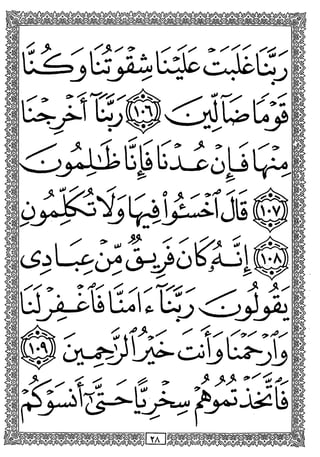 رَبَّنَا غَلَبَتْ عَلَيْنَا شِقْوَتُنَا وَكُنَّا
قَوْمًا ضَآلِّينَ ١٠٦ رَبَّنَآ أَخْرِجْنَا
مِنْهَا فَإِنْ عُدْنَا فَإِنَّا ظَٰلِمُونَ
١٠٧ قَالَ ٱخْسَـُٔوا۟ فِيهَا وَلَا تُكَلِّمُونِ
١٠٨ إِنَّهُۥ كَانَ فَرِيقٌ مِّنْ عِبَادِى
يَقُولُونَ رَبَّنَآ ءَامَنَّا فَٱغْفِرْ لَنَا
وَٱرْحَمْنَا وَأَنتَ خَيْرُ ٱلرَّٰحِمِينَ ١٠٩
فَٱتَّخَذْتُمُوهُمْ سِخْرِيًّا حَتَّىٰٓ أَنسَوْكُمْ
٢٨